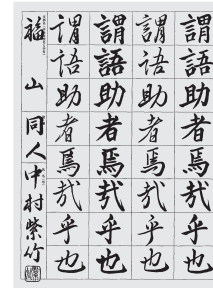 謂語助者焉哉乎也
謂語助者焉哉乎也
謂語助者焉哉乎也
謂語助者焉哉乎也
福山 同人 中村紫竹